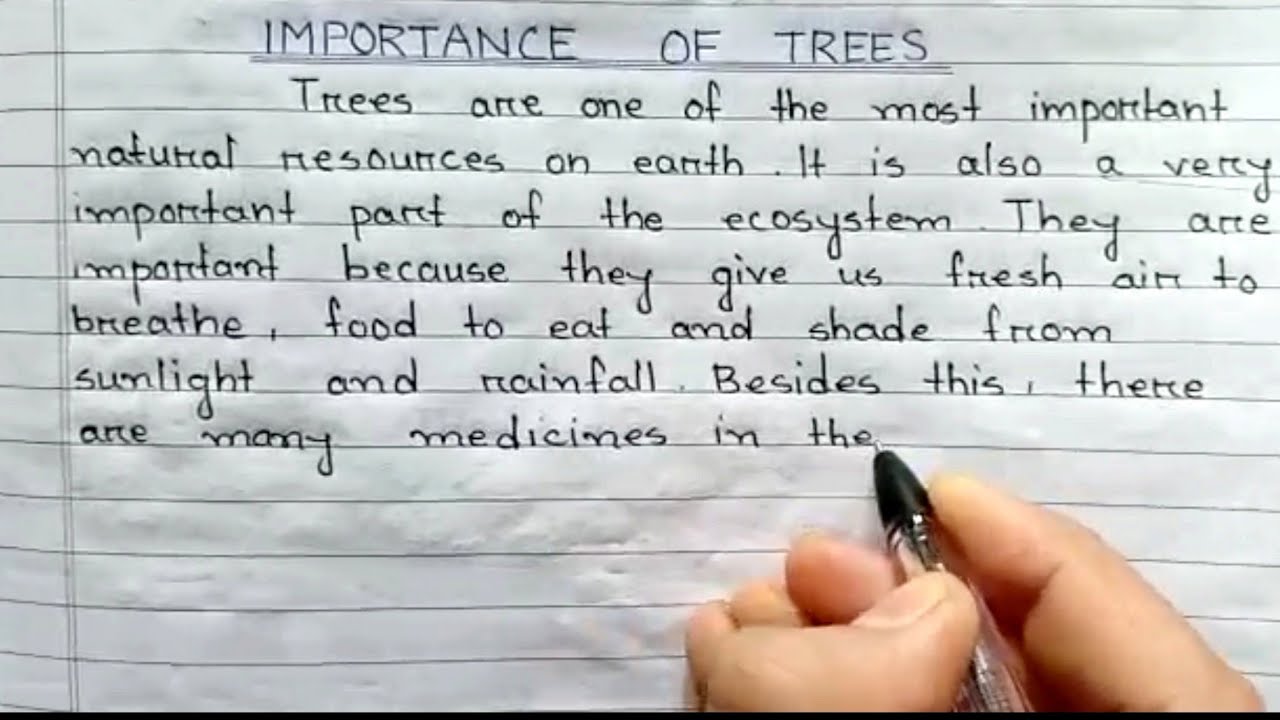 IMPORTANCE OF TREES
Trees are one of the most important
natural resources on earth. It is also a very
important part of the ecosystem. They are
important because they give us fresh air to
breathe, food to eat and shade from
sunlight and rainfall. Besides this, there
are many medicines in the